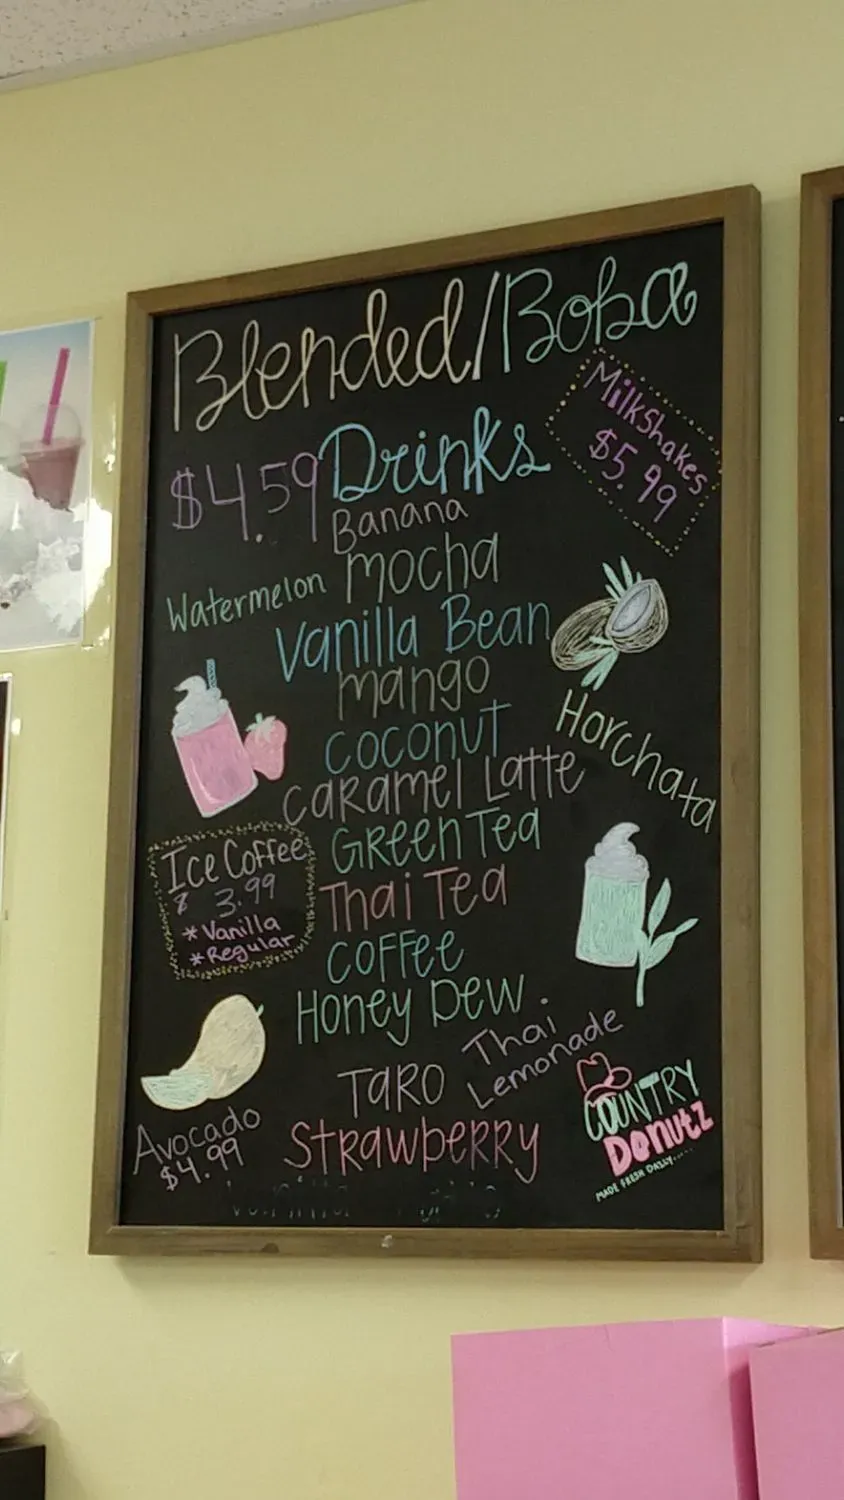 Blended/Boba
Drinks
$4.59
MilkShakes
$5.99
Banana
mocha
Watermelon
Vanilla Bean
mango
coconut
Horchata
caramel Latte
Green Tea
Ice Coffee
$ 3.99
*Vanilla
*Regular
Thai Tea
coffee
Honey Dew
Thai
Lemonade
Taro
Avocado
$4.99
Strawberry
COUNTRY
Donutz
MADE FRESH DAILY.....